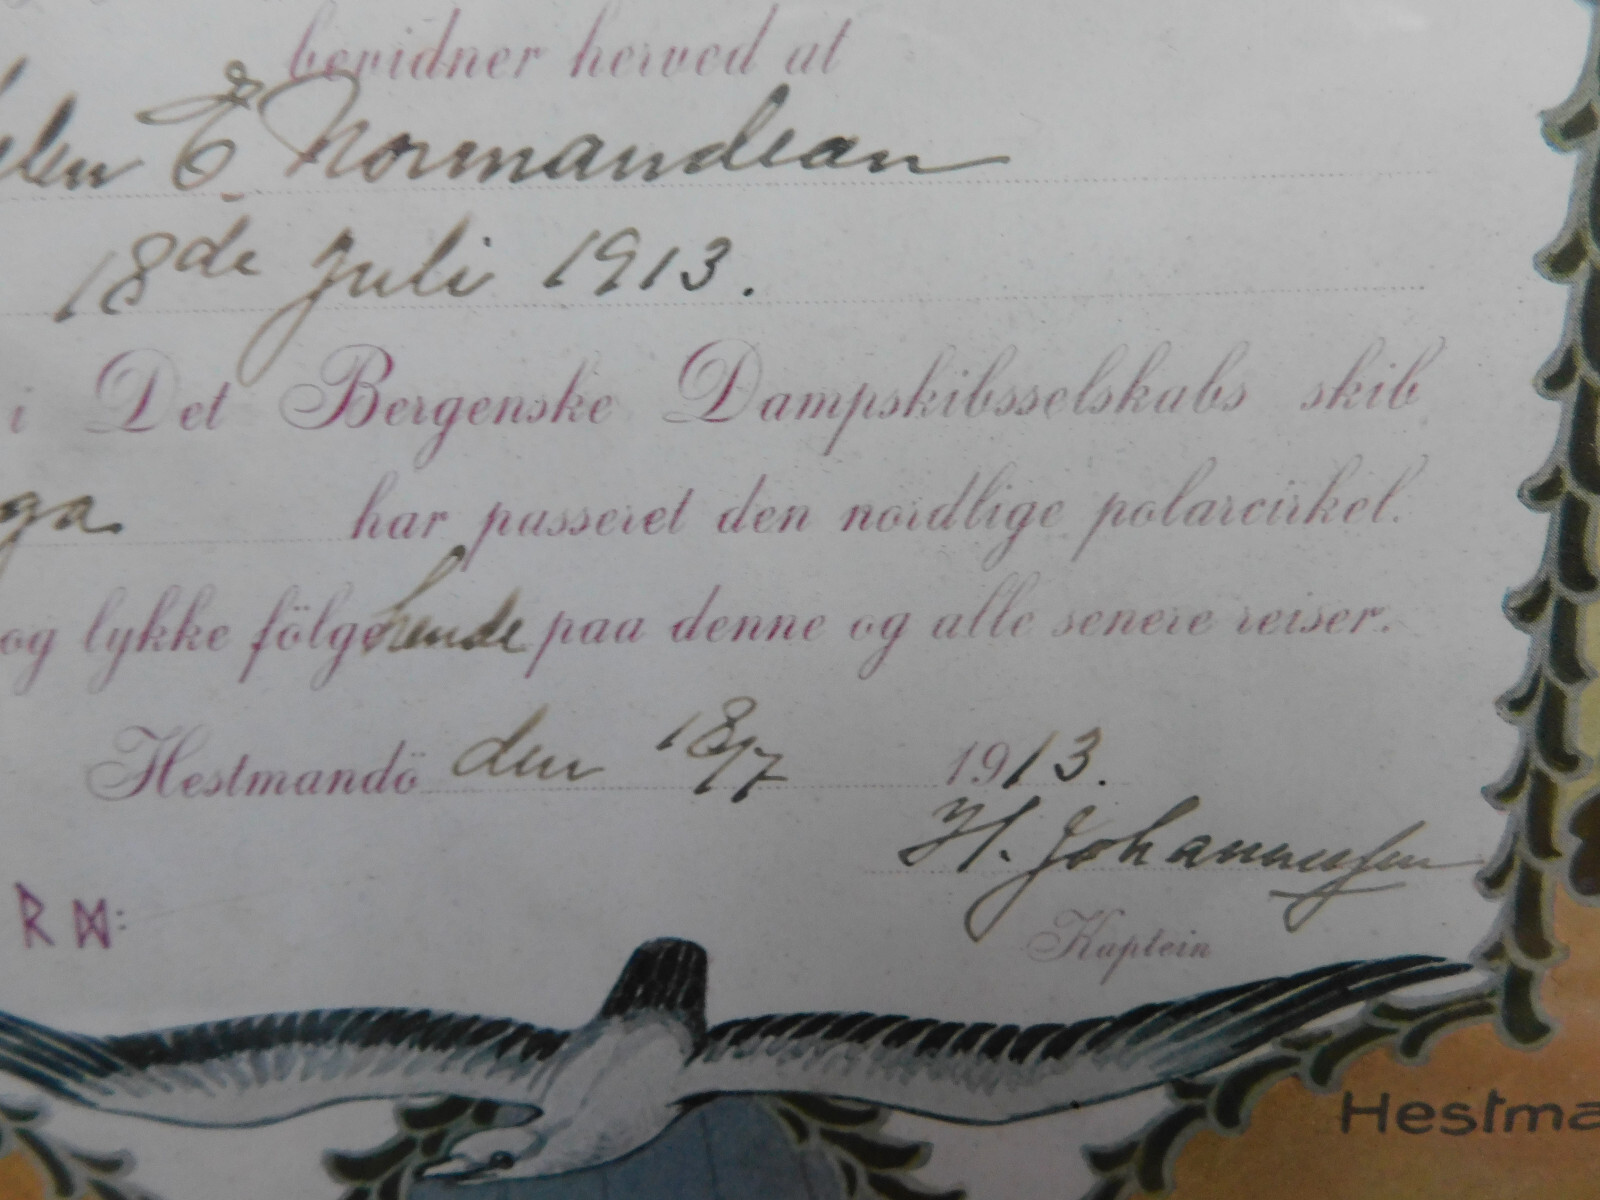 bevidner herved at
elen E Normandean
18de Juli 1913.
i Det Bergenske Dampskibsselskabs skib
ga har passeret den nordlige polarcirkel.
og lykke fölge hende paa denne og alle senere reiser.
Hestmandö den 18/7 1913.
H. Johannessen
Kaptein
ᚱ ᛞ:
Hestma